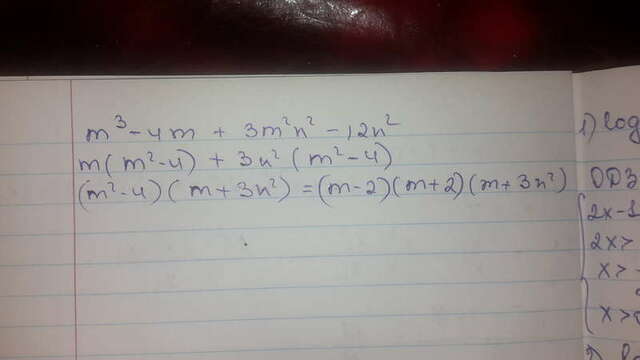 m³ - 4m + 3m²n² - 12n²
m(m² - 4) + 3n²(m² - 4)
(m² - 4)(m + 3n²) = (m - 2)(m + 2)(m + 3n²)
1) log
ОДЗ
2x - 1
2x >
x >
x >